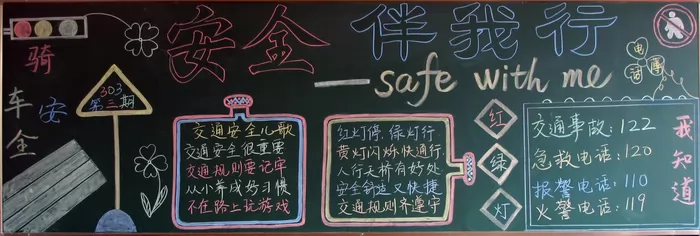 安全伴我行
——safe with me
骑车安全
303
第三期
交通安全儿歌
交通安全很重要
交通规则要记牢
从小养成好习惯
不在路上玩游戏
红灯停,绿灯行
黄灯闪烁快通行
人行天桥有好处
安全舒适又快捷
交通规则齐遵守
红
绿
灯
电话
交通事故:122
急救电话:120
报警电话:110
火警电话:119
我知道